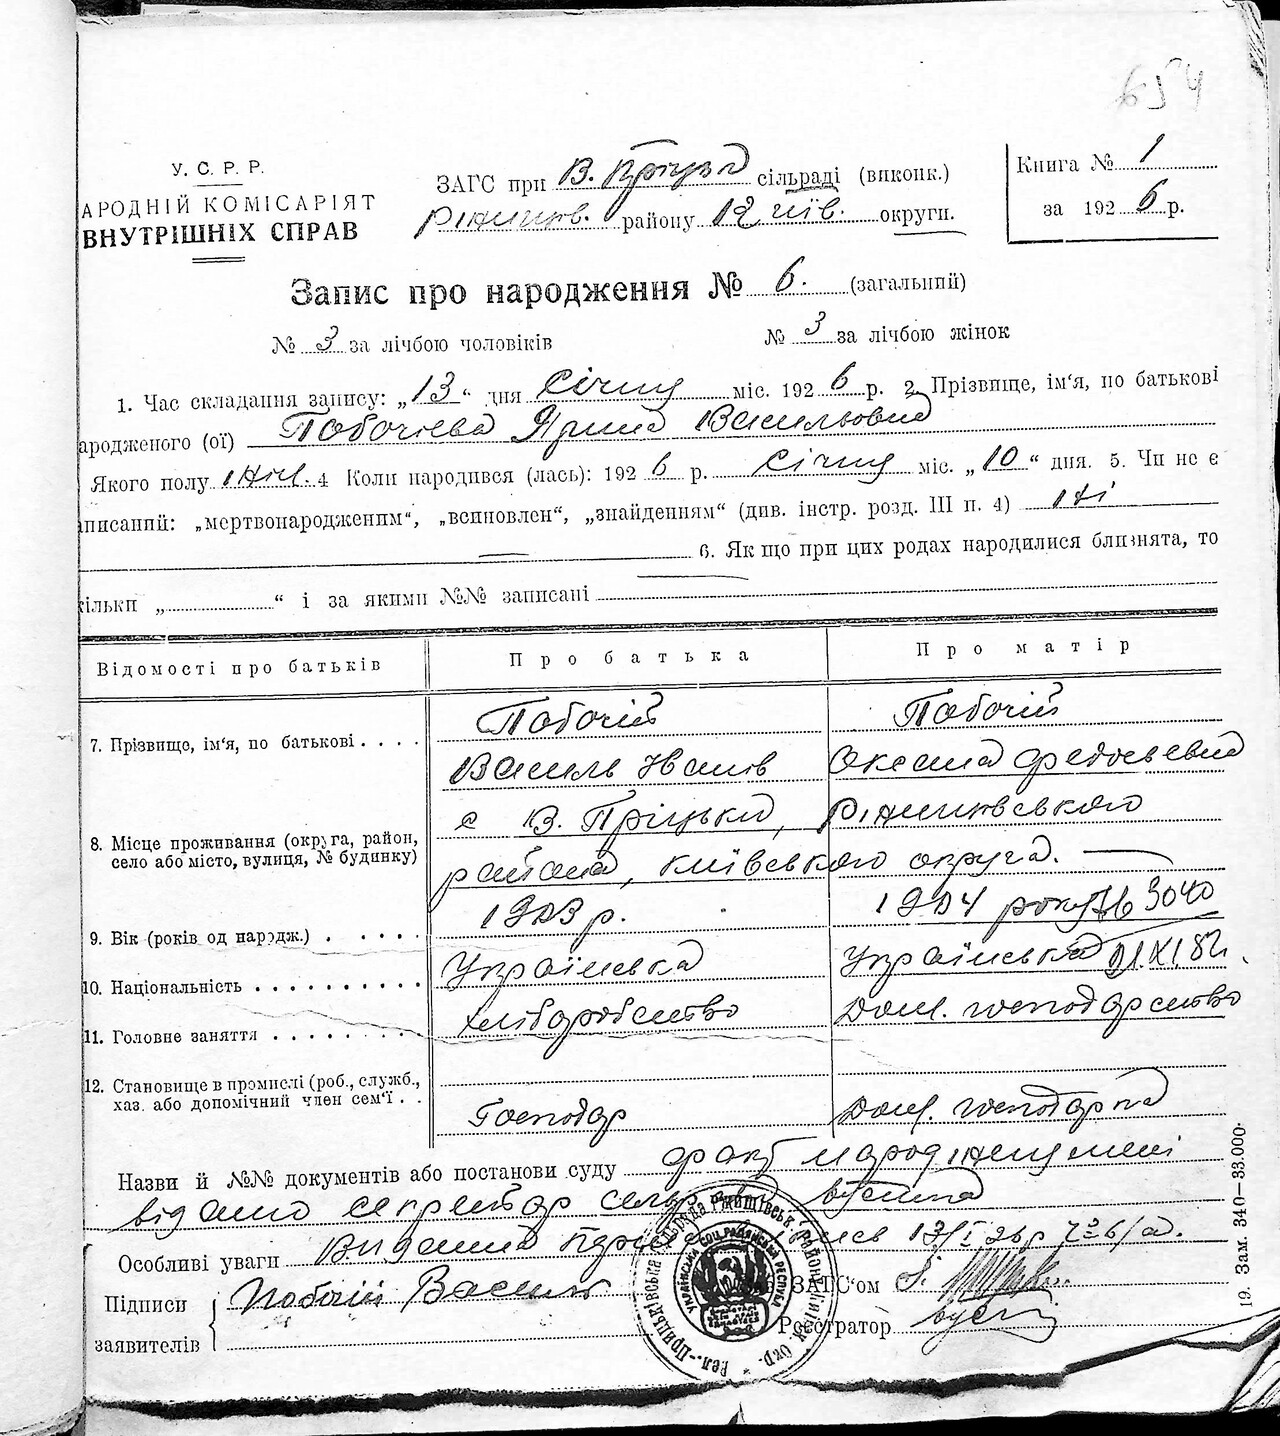 654
У. С. Р. Р.
АРОДНІЙ КОМІСАРІЯТ
ВНУТРІШНІХ СПРАВ
ЗАГС при В. Пріцьк сільраді (виконк.)
району Київ. округи.
Книга № 1
за 1926 р.
Запис про народження № 6. (загальний)
№ 3 за лічбою чоловіків № 3 за лічбою жінок
1. Час складання запису: „13“ дня Січня міс. 1926 р. 2. Прізвище, ім'я, по батькові
ародженого (ої) Побочіева Ярина Васильовна
Якого полу жін. 4 Коли народився (лась): 1926 р. Січня міс. „10“ дня. 5. Чи не є
аписаний: „мертвонародженим“, „всиновлен“, „знайденням“ (див. інстр. розд. III п. 4) ні
6. Як що при цих родах народилися близнята, то
кільки „ “ і за якими №№ записані
Відомості про батьків Про батька Про матір
7. Прізвище, ім'я, по батькові . . . . Побочій Побочій
Василь Іванів Оксана Федосьевна
8. Місце проживання (округа, район, село або місто, вулиця, № будинку) с В. Пріцьки, Ріжищівського
района, Київського округа.
9. Вік (років од нарэдж.) . . . . . 1903 р. 1904 року 3040
10. Національність . . . . . . . . . . Українська Українська 21.XI.82.
11. Головне заняття . . . . . . . . Хліборобство Дом. господарство
12. Становище в промислі (роб., служб., хаз. або допомічний член сем'ї . . Господар Дом. господарка
Назви й №№ документів або постанови суду факт народження мені
відомо секретар сельради
Особливі уваги 13/I 26 р.
Підписи заявителів Побочій Василь
ЗАГС'ом
Реєстратор
УКРАЇНСЬКА СОЦ. РАДЯНСЬКА РЕСПУБЛ.
19. Зам. 340—33.000.